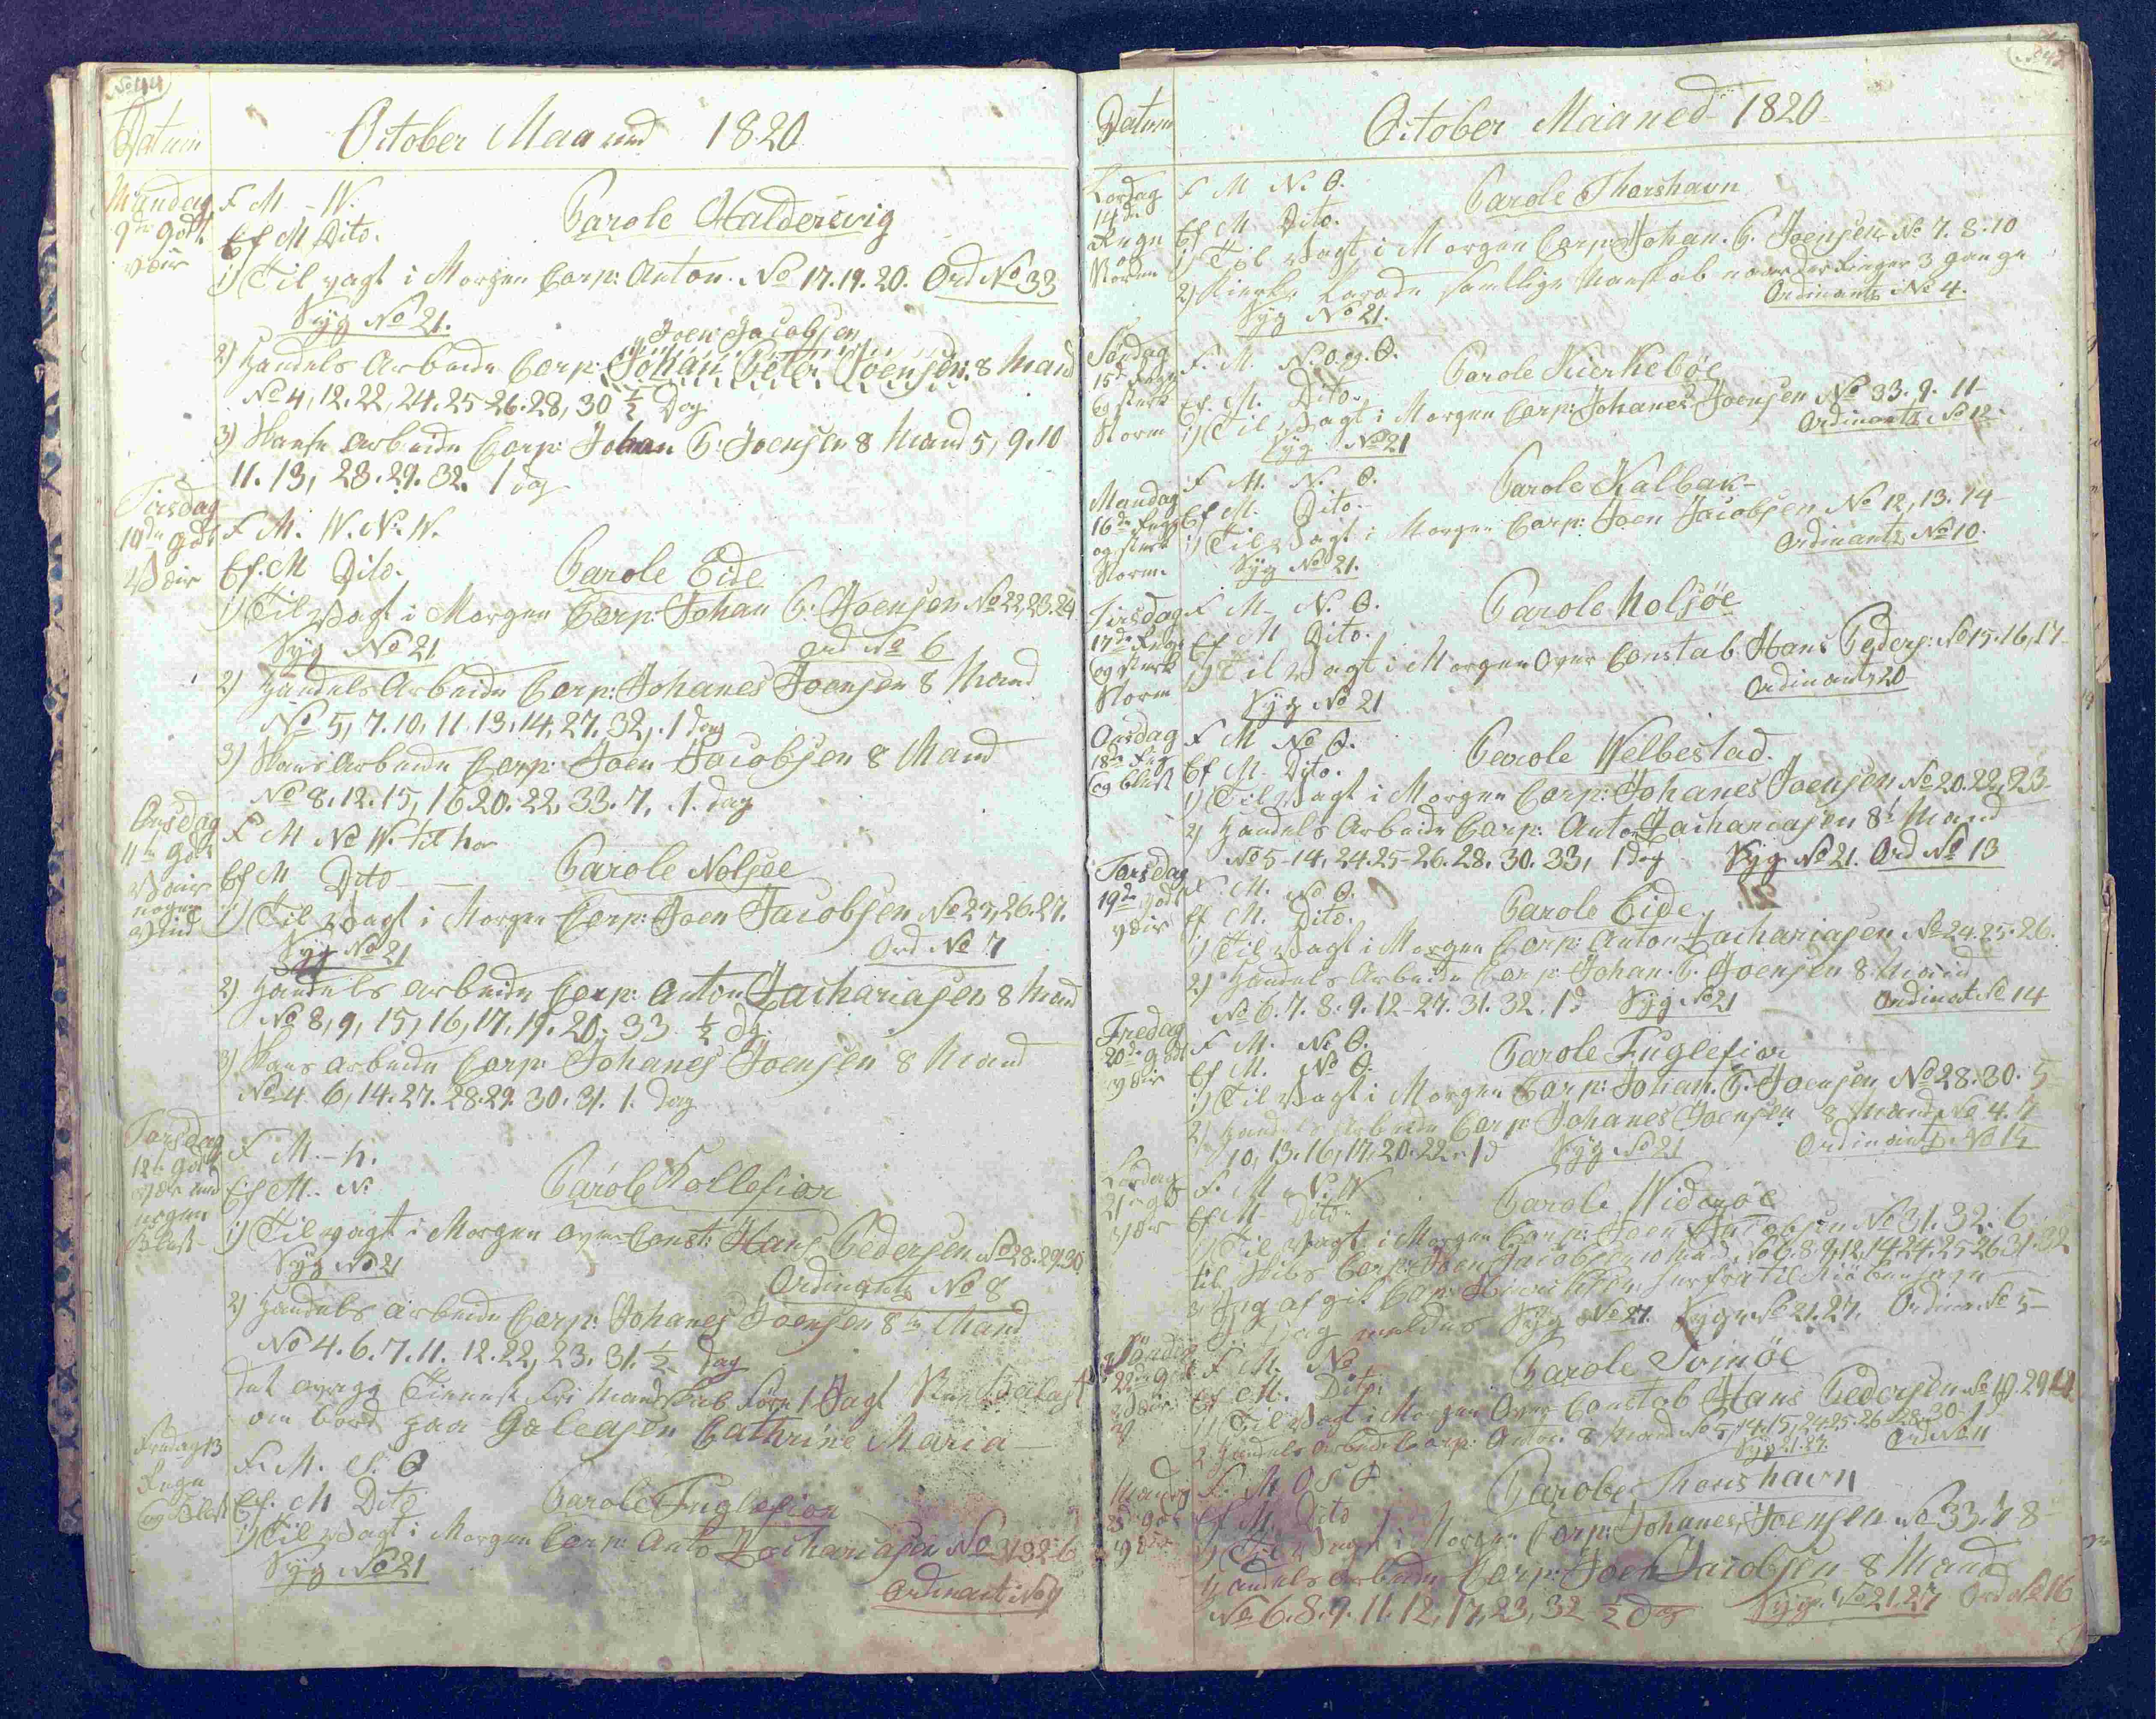 No 44
Datum
October Maaned 1820
Mandag
9de godt
Veir
F M - W.
Ef M Dito.
Parole Haldersvig
1) Til Vagt i Morgen Corp: Anton. No 17. 19. 20. Ord No 33
Syg No 21.
Joen Jacobsen
2) Handels Arbeide Corp: Johan Peter Joensen 8 Mand
No 4, 12. 22, 24. 25 26. 28, 30 ½ Dag
3) Skanse Arbeide Corp: Johan P: Joensen 8 Mand 5, 9. 10
11. 13, 23. 29. 32. 1 dag
Tirsdag
10de godt
Veir
F M. W. N. W.
Ef. M Dito.
Parole Eide
1) Til Vagt i Morgen Corp: Johan P: Joensen No 22, 23. 24
Syg No 21
Ord No 6
2) Handels Arbeide Corp: Johanes Joensen 8 Mand
No 5, 7. 10, 11. 13, 14, 27. 32, 1 dag
3) Skans Arbeide Corp: Joen Jacobsen 8 Mand
No 8. 12. 15, 16 20. 22, 33. 7, 1. dag
Onsdag
11te godt
Veir
nogen
Vind
F M No W. til
Ef M Dito
Parole Nolsøe
1) Til Vagt i Morgen Corp: Joen Jacobsen No 25, 26. 27.
Syg No 21
Ord No 7
2) Handels Arbeide Corp: Anton Zachariasen 8 Mand
No 8, 9, 15, 16, 17, 19. 20. 33 ½ Dg.
3) Skans Arbeide Corp: Johanes Joensen 8 Mand
No 4 6, 14. 27. 28. 29. 30. 31. 1. Dag
Torsdag
12te godt
Veir med
nogen
Blæst
F M. -
Ef M. N
Parole Kollefior
1) Til Vagt i Morgen Over Const: Hans Pedersen No 28. 29. 30
Syg No 21
Ordinants No 8
2) Handels Arbeide Corp: Johanes Joensen 8te Mand
No 4. 6. 7. 11. 12. 22, 23. 31. ½ Dag
Det øvrige Tieneste Frie Mandskab 1 Jagt
om bord paa Galeasen Cathrine Maria
Fredag 13
Regn
og Blæst
F. M. S. O
Ef. M Dito
Parole Fuglefior
1) Til Vagt i Morgen Corp: Anto Zachariasen No 31 32 6
Syg No 21
Ordinant: No 9
Datum
October Maaned 1820
Lørdag
14de
Regn
og
Storm
F M N. O.
Ef M Dito.
Parole Thorshavn
1) Til Vagt i Morgen Corp: Johan. P. Joensen No 7. 8. 10
2) Kierke Parade samtlige Manskab naar der Ringer 3 gange
Syg No 21.
Ordinants No 4.
Søndag
15de Regn
og sterk
Storm
F. M. N. O. og. O.
Ef. M. Dito.
Parole Kierkebøe
1) Til Vagt i Morgen Corp: Johanes Joensen No 33. 9. 11
Syg No 21
Ordinants No 12
Mandag
16de Regn
og sterk
Storm.
F M. N. O.
Ef M. Dito.
Parole Kalbak
1) Til Vagt i Morgen Corp: Joen Jacobsen No 12, 13. 14
Syg No 21.
Ordinants No 10.
Tirsdag
17de Regn
og sterk
Storm
F M. N. O.
Ef M Dito.
Parole Nolsøe
1) Til Vagt i Morgen Over Constab Hans Peders: No 15. 16, 17
Syg No 21
Ordinants 20
Onsdag
18de Reg
og blæst
F M No O.
Ef M. Dito.
Parole Welbestad.
1) Til Vagt i Morgen Corp: Johanes Joensen No 20. 22, 23
2) Handels Arbeide Corp: Anton Zachariasen 8t Mand
No 5 - 14, 24. 25 - 26. 28. 30. 33, 1 dag Syg No 21. Ord No 13
Torsdag
19de godt
Veir
F. M. No O.
Ef M. Dito.
Parole Eide
1) Til Vagt i Morgen Corp: Anton Zachariasen No 24. 25. 26.
2) Handels Arbeide Corp: Johan. P. Joensen 8. Mand
No 6. 7. 8. 9. 12 - 27. 31. 32. 1 d Syg No 21 Ordinat No 14
Fredag
20de godt
Veir
F M. No O.
Ef M. No O.
Parole Fuglefior
1) Til Vagt i Morgen Corp: Johan. P. Joensen No 28. 30. 5
2) Handels Arbeide Corp: Johanes Joensen 8 Mand No 4. 7
10, 13. 16, 17. 20. 22. 1 d Syg No 21 Ordinants No 15
Lørdag
21 godt
Veir
F. M N. W
Ef M Dito.
Parole Widerøe
1) Til Vagt i Morgen Corp: Joen Jacobsen No 31. 32. 6
til Skibs Corp: Joen Jacobsen 10 Mand, No 6. 8. 9, 12, 14. 24. 25 26 31. 32
herfra til Kiøbenhavn
Dag meldes Syg No 27. Syg No 21. 27. Ordina No 5
Søndag
22de godt
Veir
F M. No
Ef M. Dito.
Parole Svinøe
1) Til Vagt i Morgen Over Constab Hans Pedersen No 19. 29 11
2 Handels Arbeide Corp: Anton 8 Mand No 5, 14. 15, 24 25. 26 28. 30 1 d
Syg 21. 27. Ord No 11
Mandag
23 godt
Veir
F. M O S O.
Ef M. Dito
Parole Thorshavn
1) Til Vagt i Morgen Corp: Johanes Joensen No 33. 7 8
Handels Arbeide Corp: Joen Jacobsen 8 Mand
No 6. 8. 9. 11. 12, 17, 23, 32 ½ Dag Syg: No 21. 27 Ord No 16